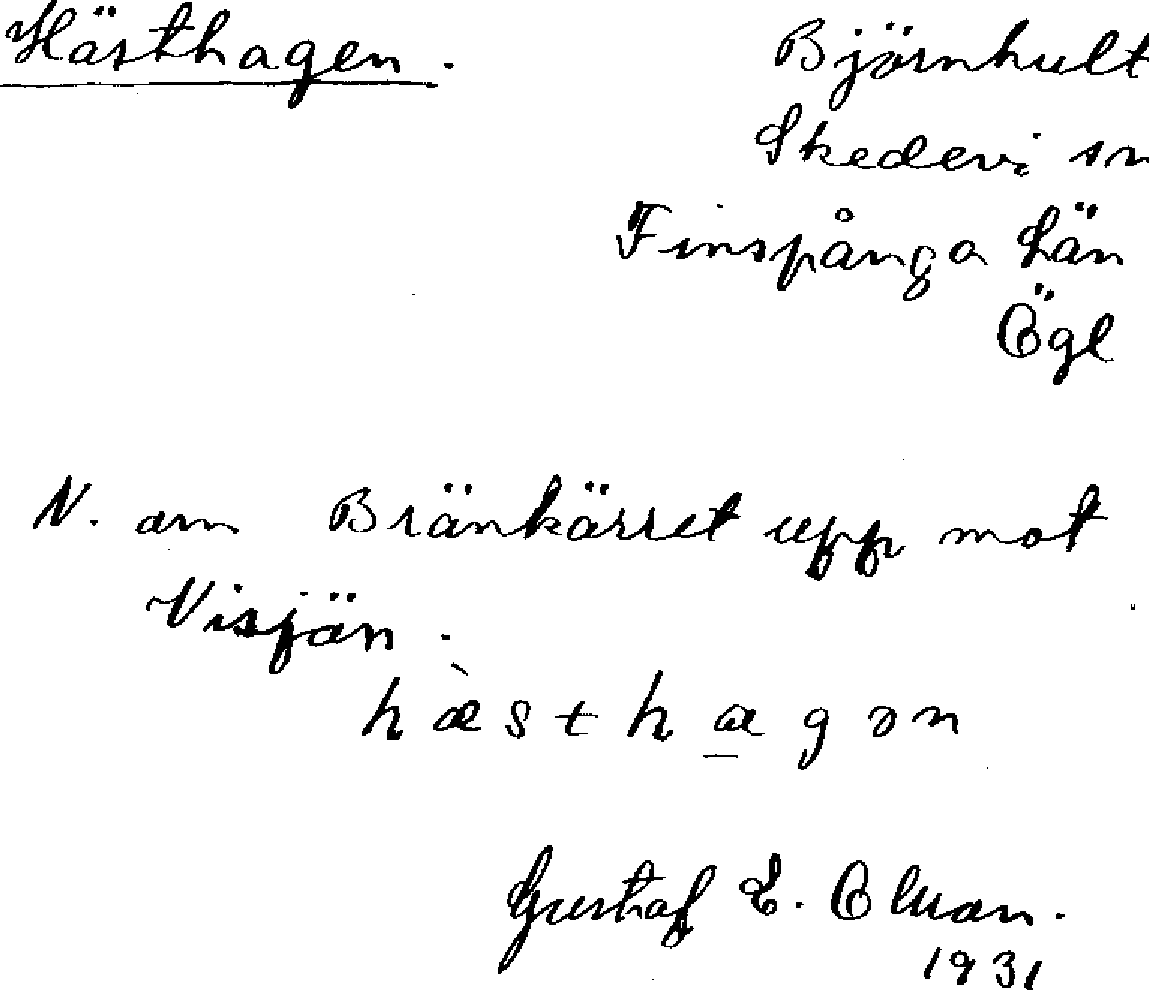 Hästhagen.
Björnhult
Skedevi sn
Finspånga län
Ögl
N. om Bränkärret upp mot
Visjön.
hæ̀sthagən
Gustaf E.
1931